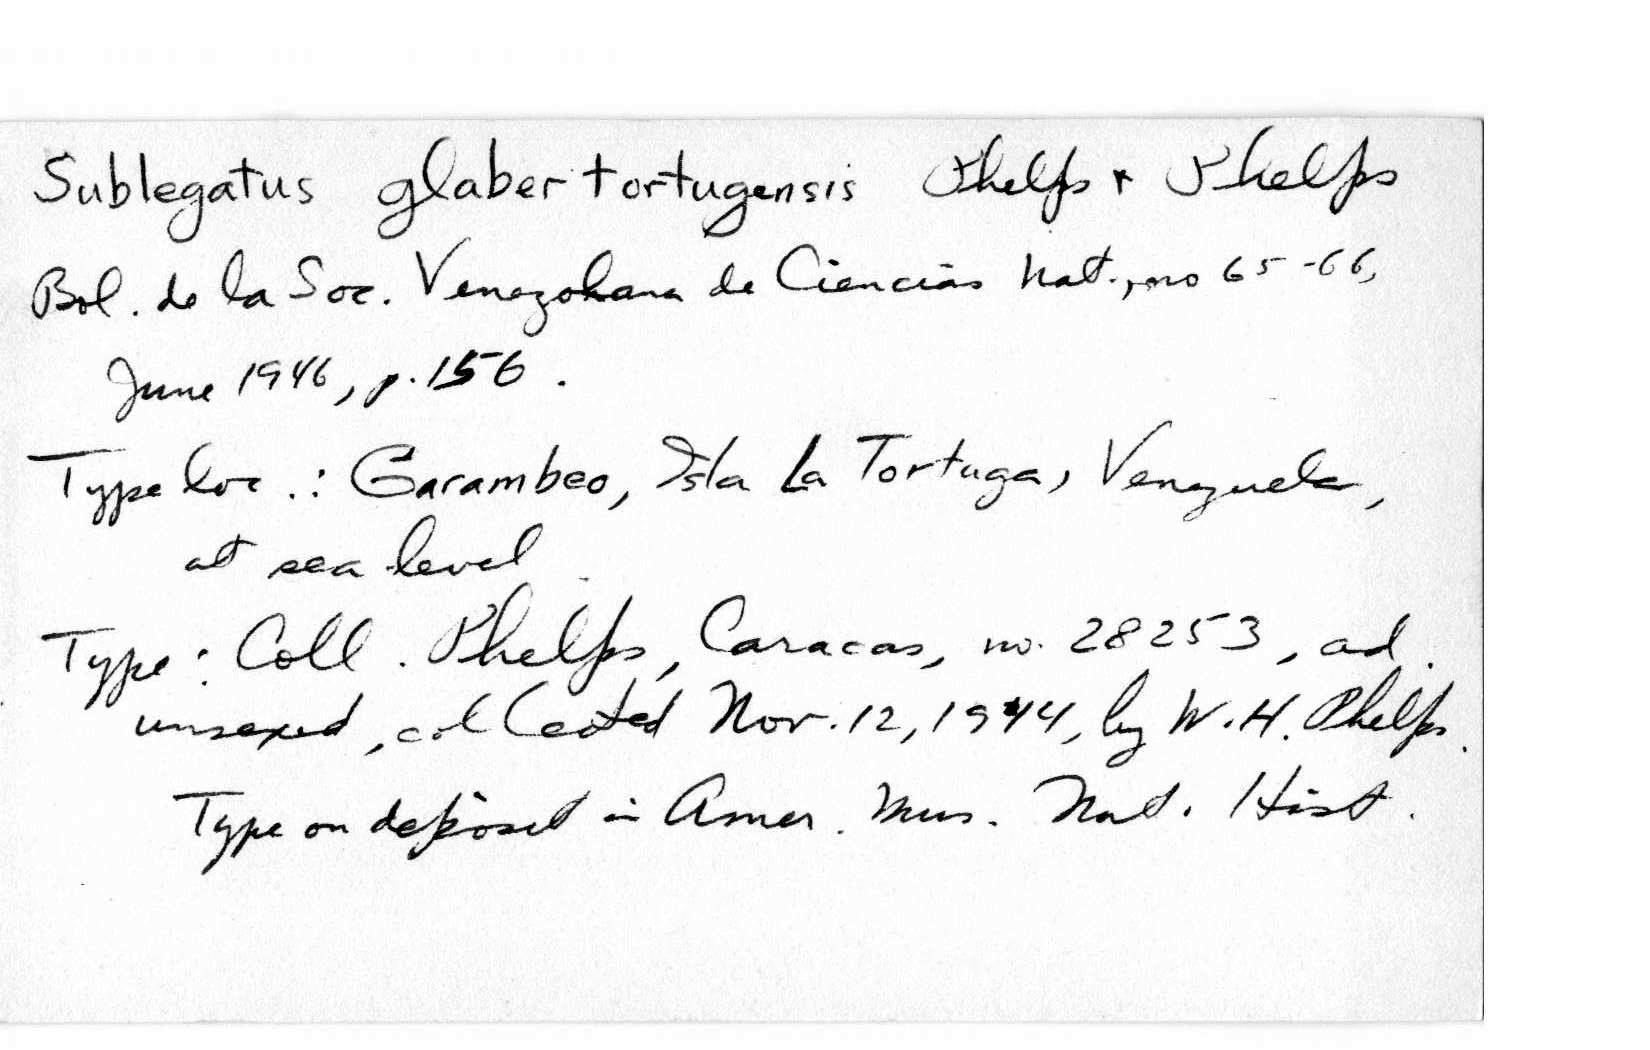 Sublegatus glaber tortugensis Phelps + Phelps
Bol. de la Soc. Venezolana de Ciencias Nat., no 65-66,
June 1946, p. 156.
Type loc.: Garambeo, Isla La Tortuga, Venezuela,
at sea level
Type: Coll. Phelps, Caracas, no. 28253, ad.
unsexed, collected Nov. 12, 1944, by W. H. Phelps.
Type on deposit in Amer. Mus. Nat. Hist.